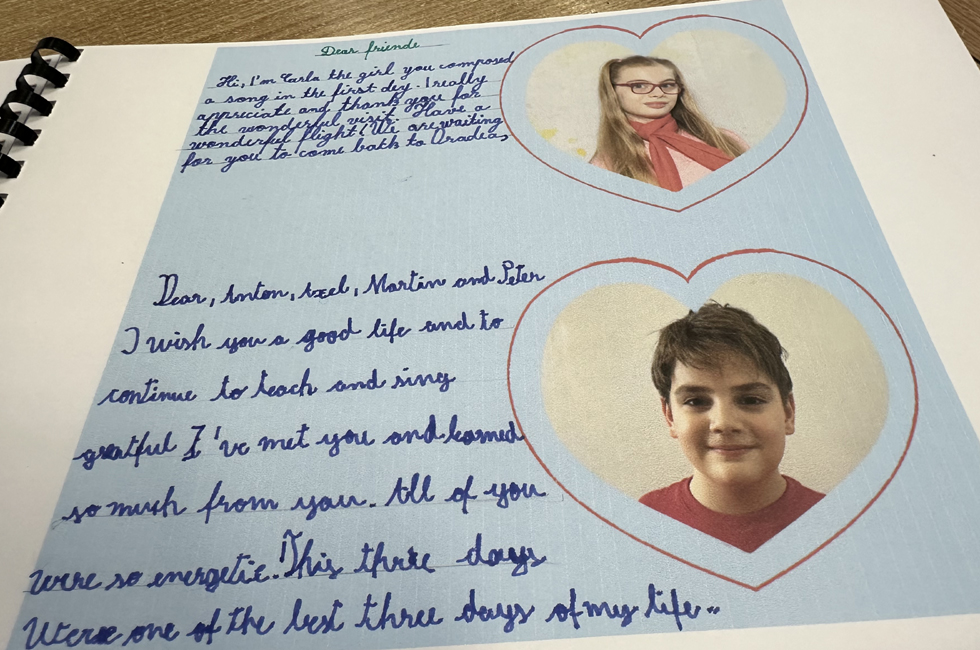 Dear friends
Hi, I'm Carla the girl you composed
a song in the first day. I really
appreciate and thank you for
the wonderful visit. Have a
wonderful flight! We are waiting
for you to come bath to Oradea,
Dear, Anton, Axel, Martin and Peter
I wish you a good life and to
continue to teach and sing
greatful I've met you and learned
so much from you. All of you
were so energetic! This three days
Were one of the best three days of my life..